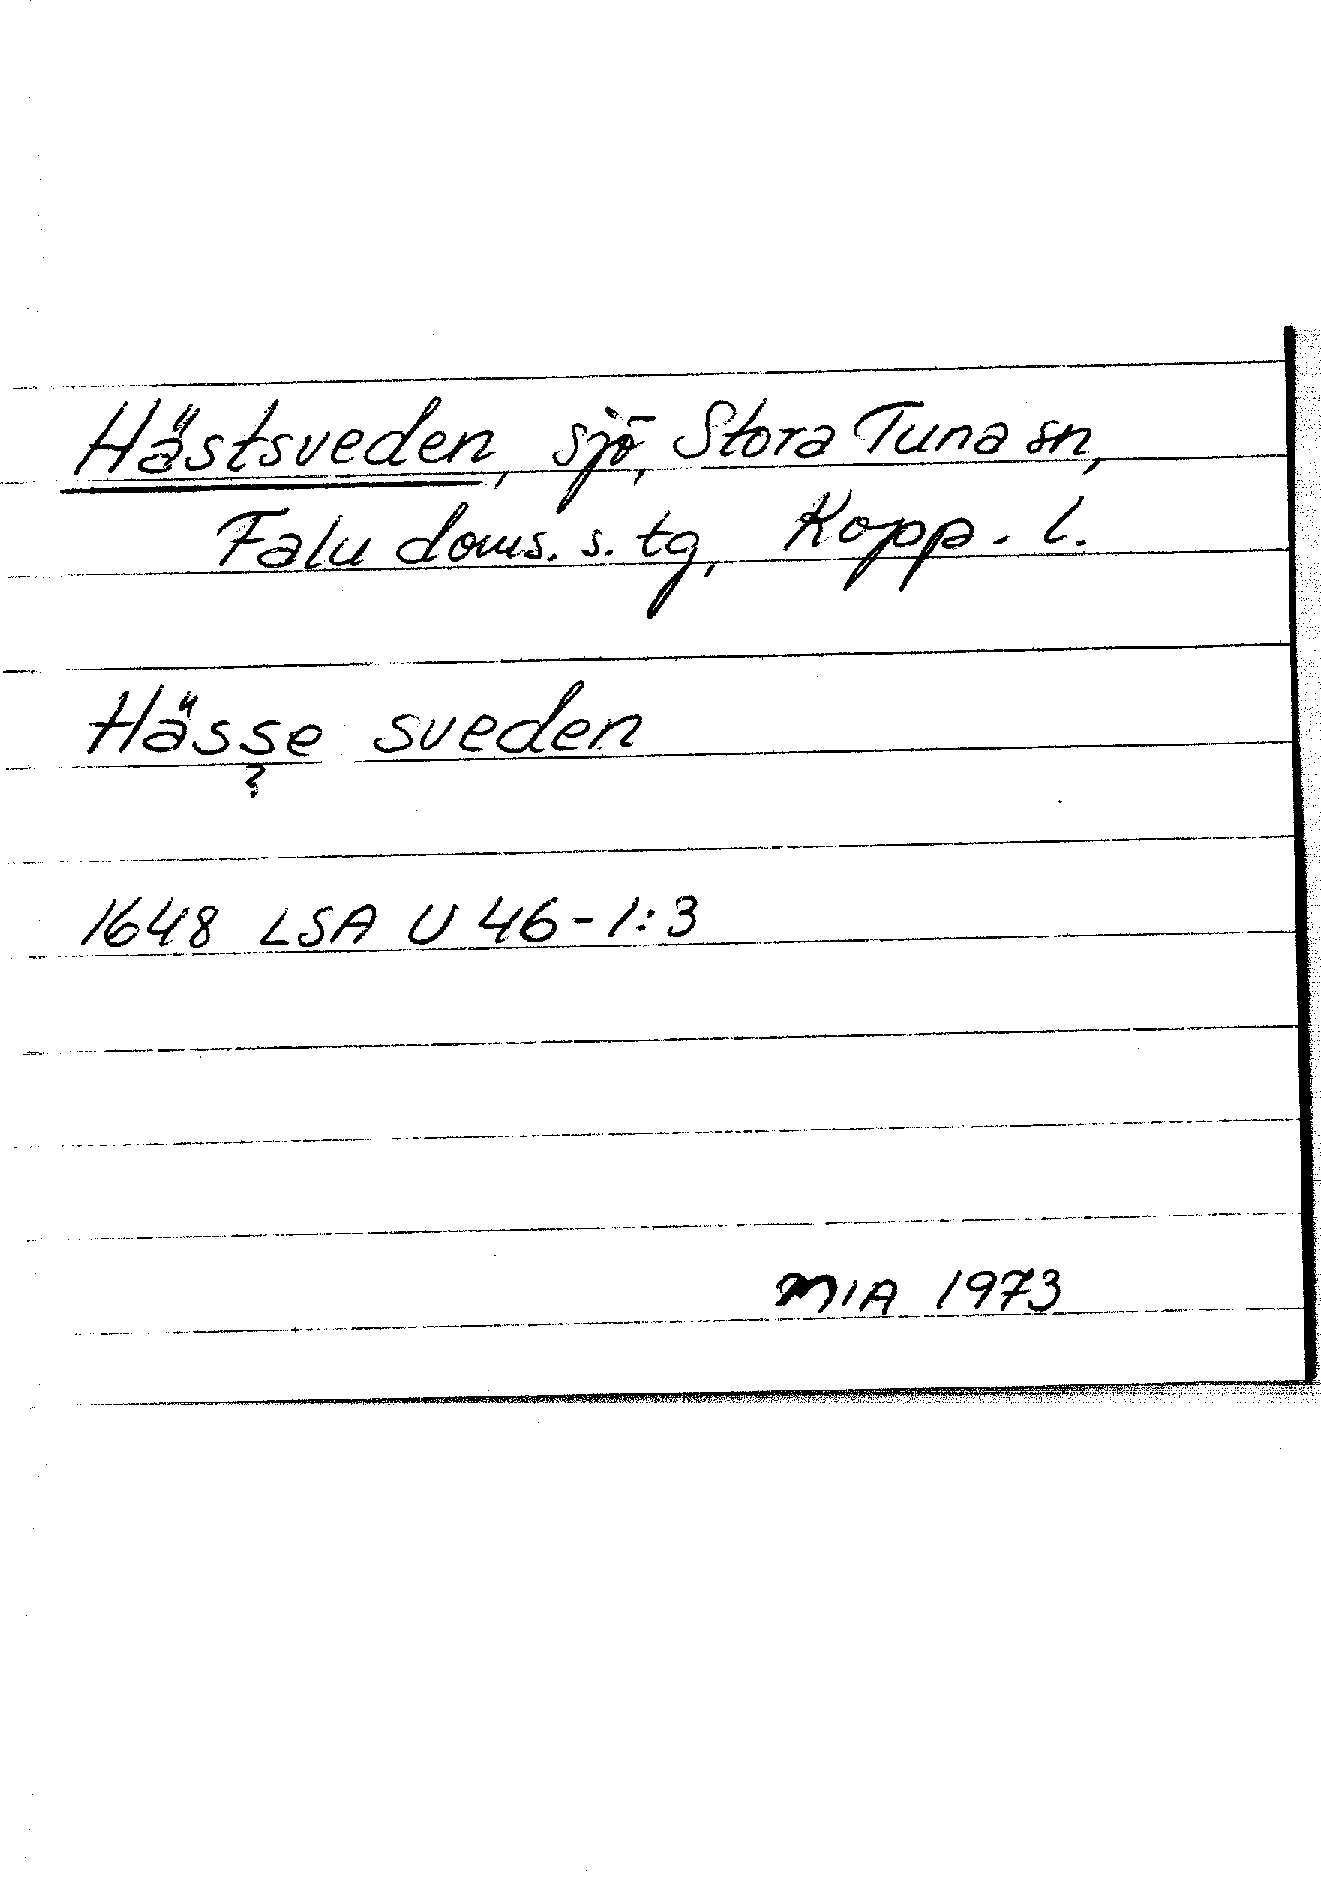 Hästsveden, sjö, Stora Tuna sn,
Falu doms. s. tg, Kopp. l.
Hässe sveden
?
1648 LSA U 46-1:3
MIA 1973